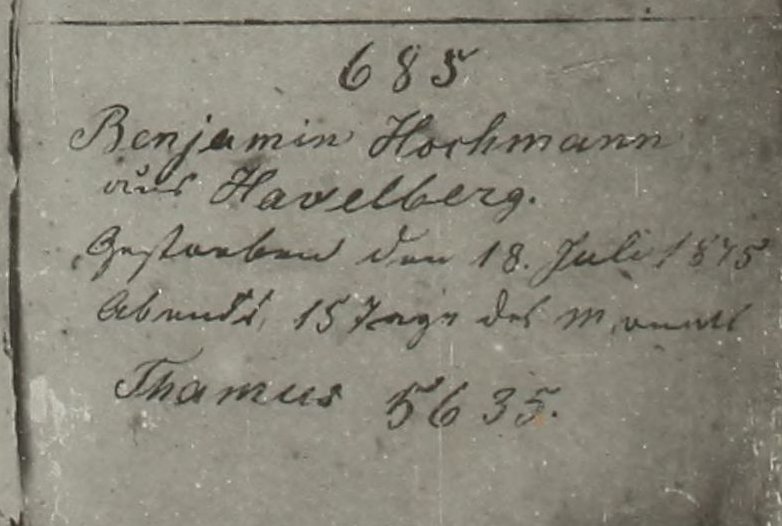 685
Benjamin Hochmann
aus Havelberg.
Gestorben den 18. Juli 1875
Abends, 15 Tage des Monats
Thamus 5635.